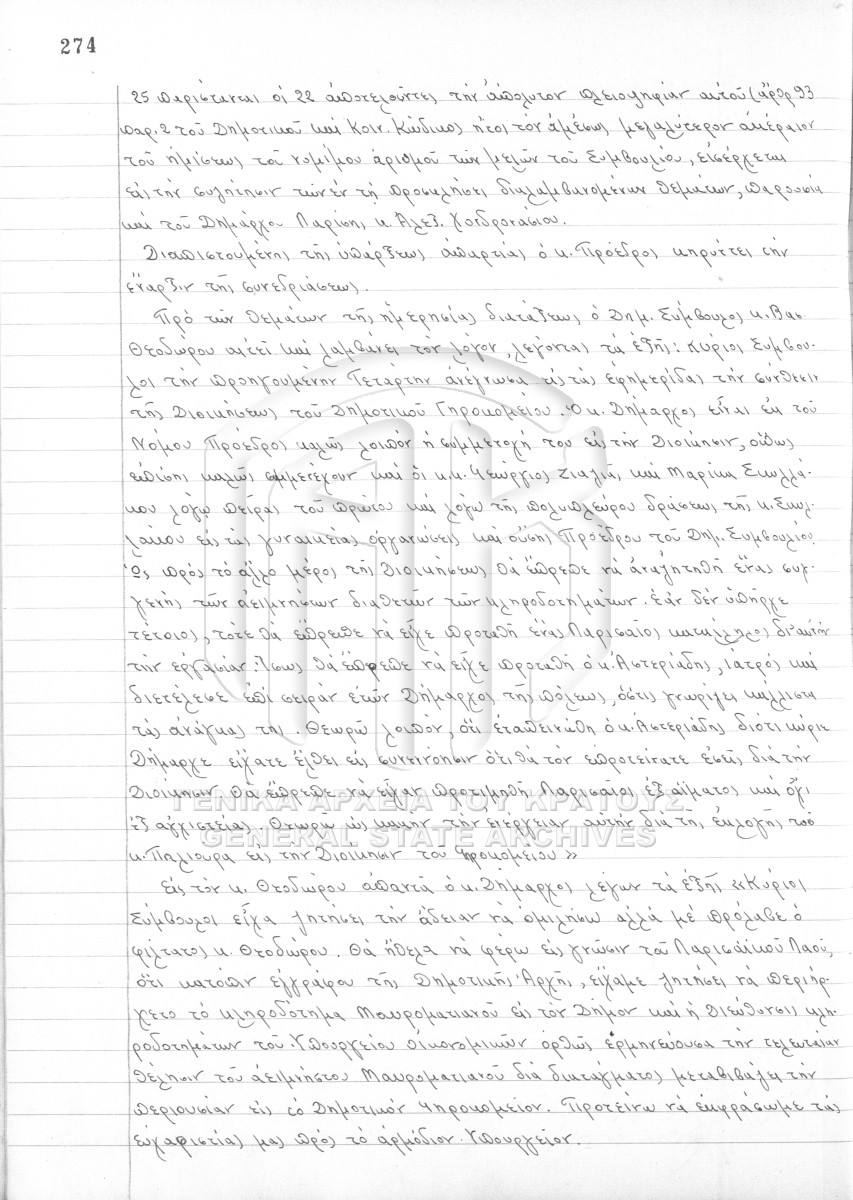 274
25 παρίστανται οἱ 22 ἀποτελοῦντες τὴν ἀπόλυτον πλειοψηφίαν αὐτοῦ (ἄρθρ 93
παρ. 2 τοῦ Δημοτικοῦ καὶ Κοιν. Κώδικος ἤτοι τὸν ἀμέσως μεγαλύτερον ἀκέραιον
τοῦ ἡμίσεως τοῦ νομίμου ἀριθμοῦ τῶν μελῶν τοῦ Συμβουλίου, εἰσέρχεται
εἰς τὴν συζήτησιν τῶν ἐν τῇ προσκλήσει διαλαμβανομένων θεμάτων, παρουσίᾳ
καὶ τοῦ Δημάρχου Λαρίσης κ. Ἀλεξ. Χονδρονάσιου.
Διαπιστουμένης τῆς ὑπάρξεως ἀπαρτίας ὁ κ. Πρόεδρος κηρύττει τὴν
ἔναρξιν τῆς συνεδριάσεως.
Πρὸ τῶν θεμάτων τῆς ἡμερησίας διατάξεως ὁ Δημ. Σύμβουλος κ. Βασ.
Θεοδώρου αἰτεῖ καὶ λαμβάνει τὸν λόγον, λέγοντας τὰ ἑξῆς: Κύριοι Σύμβου-
λοι τὴν προηγουμένην Τετάρτην ἀνέγνωσα εἰς τὰς ἐφημερίδας τὴν σύνθεσιν
τῆς Διοικήσεως τοῦ Δημοτικοῦ Γηροκομείου. Ὁ κ. Δήμαρχος εἶναι ἐκ τοῦ
Νόμου Πρόεδρος καλῶς λοιπὸν ἡ συμμετοχή του εἰς τὴν Διοίκησιν, ὅπως
ἐπίσης καλῶς συμμετέχουν καὶ οἱ κ.κ. Γεώργιος Ζιαγιᾶς καὶ Μαρίκα Σκυλλά-
κου λόγῳ πείρας τοῦ πρώτου καὶ λόγῳ τῆς πολυπλεύρου δράσεως τῆς κ. Σκυλ-
λάκου εἰς τὰς γυναικείας ὀργανώσεις καὶ οὔσης Προέδρου τοῦ Δημ. Συμβουλίου.
Ὡς πρὸς τὸ ἄλλο μέρος τῆς Διοικήσεως θὰ ἔπρεπε νὰ ἀναζητηθῇ ἕνας συγ-
γενὴς τῶν ἀειμνήστων διαθετῶν τῶν κληροδοτημάτων. Ἐὰν δὲν ὑπῆρχε
τέτοιος, τότε θὰ ἔπρεπε νὰ εἶχε προταθῆ ἕνας Λαρισαῖος κατάλληλος δι' αὐτὴν
τὴν ἐργασίαν. Ἴσως θὰ ἔπρεπε νὰ εἶχε προταθῆ ὁ κ. Ἀστεριάδης, ἰατρὸς καὶ
διετέλεσε ἐπὶ σειρὰν ἐτῶν Δήμαρχος τῆς πόλεως, ὅστις γνωρίζει κάλλιστα
τὰς ἀνάγκας της. Θεωρῶ λοιπὸν, ὅτι ἐταπεινώθη ὁ κ. Ἀστεριάδης διότι κύριε
Δήμαρχε εἴχατε ἔλθει εἰς συνεννόησιν ὅτι θὰ τὸν ἐπροτείνατε ἐσεῖς διὰ τὴν
Διοίκησιν. Θὰ ἔπρεπε νὰ εἶχαν προτιμηθῆ Λαρισαῖοι ἐξ αἵματος καὶ ὄχι
ἐξ ἀγχιστείας. Θεωρῶ ὡς κακὴν τὴν ἐνέργειαν αὐτὴν διὰ τῆς ἐκλογῆς τοῦ
κ. Παλιουρα εἰς τὴν Διοίκησιν τοῦ Γηροκομείου»
Εἰς τὸν κ. Θεοδώρου ἀπαντᾶ ὁ κ. Δήμαρχος λέγων τὰ ἑξῆς «Κύριοι
Σύμβουλοι εἶχα ζητήσει τὴν ἄδειαν νὰ ὁμιλήσω ἀλλὰ μὲ πρόλαβε ὁ
φίλτατος κ. Θεοδώρου. Θὰ ἤθελα νὰ φέρω εἰς γνῶσιν τοῦ Λαρισαϊκοῦ Λαοῦ,
ὅτι κατόπιν ἐγγράφου τῆς Δημοτικῆς Ἀρχῆς, εἴχαμε ζητήσει νὰ περιήρ-
χετο τὸ κληροδότημα Μαυροματιανοῦ εἰς τὸν Δῆμον καὶ ἡ Διεύθυνσις κλη-
ροδοτημάτων τοῦ Ὑπουργείου Οἰκονομικῶν ὀρθῶς ἑρμηνεύουσα τὴν τελευταίαν
θέλησιν τοῦ ἀειμνήστου Μαυροματιανοῦ διὰ διατάγματος μεταβιβάζει τὴν
περιουσίαν εἰς τὸ Δημοτικὸν Γηροκομεῖον. Προτείνω νὰ ἐκφράσωμε τὰς
εὐχαριστίας μας πρὸς τὸ ἁρμόδιον Ὑπουργεῖον.
ΓΕΝΙΚΑ ΑΡΧΕΙΑ ΤΟΥ ΚΡΑΤΟΥΣ
GENERAL STATE ARCHIVES